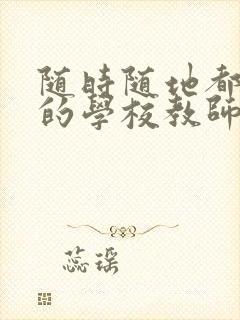 随時随地都
的學校教師
蕊瑤